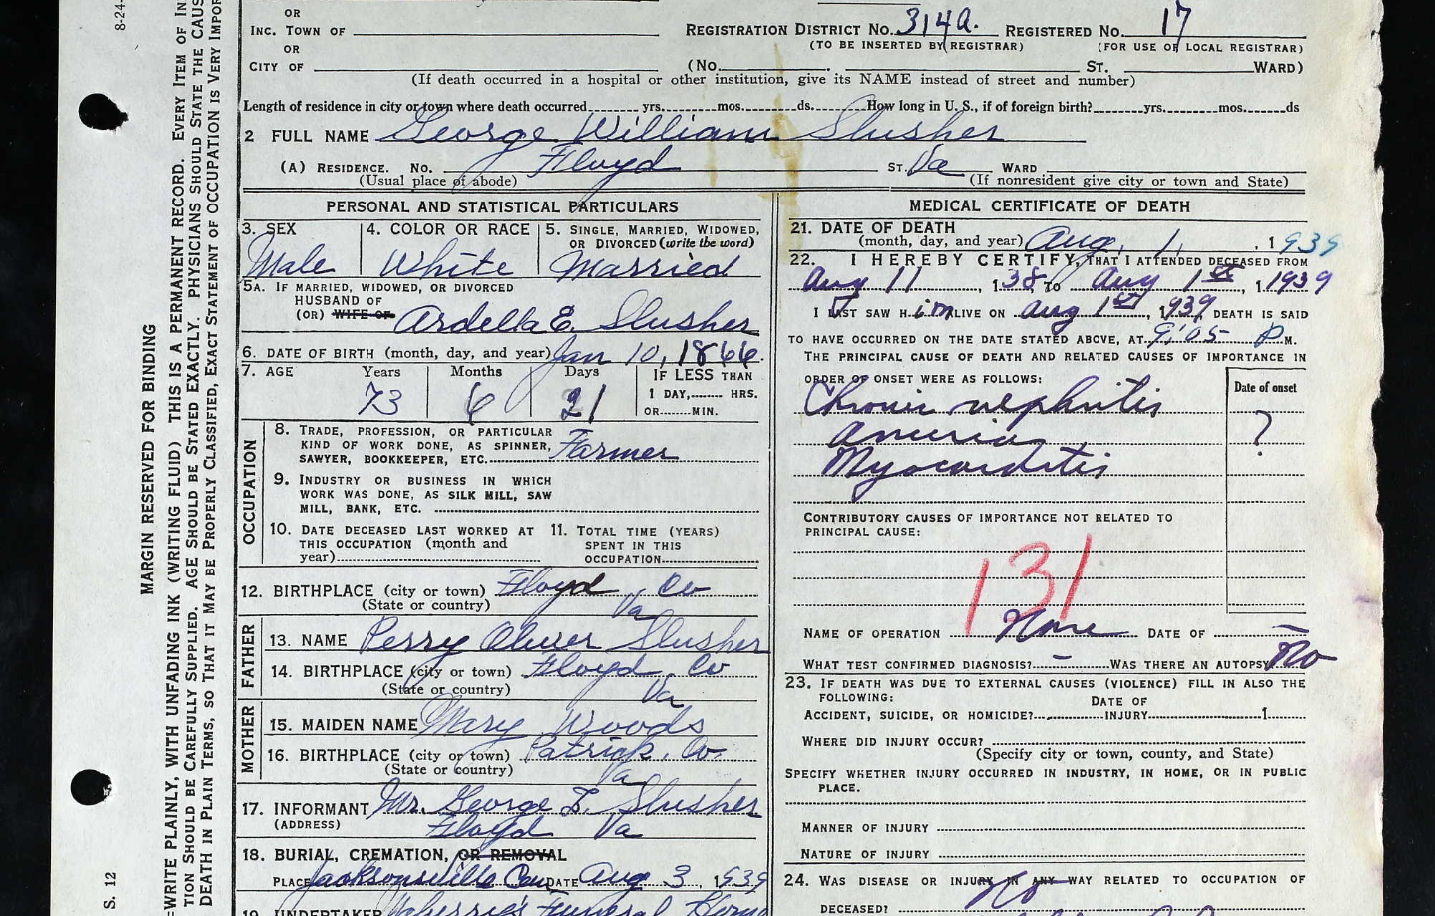 8-24-
MARGIN RESERVED FOR BINDING
WRITE PLAINLY, WITH UNFADING INK (WRITING FLUID) THIS IS A PERMANENT RECORD. EVERY ITEM OF IN
TION SHOULD BE CAREFULLY SUPPLIED. AGE SHOULD BE STATED EXACTLY. PHYSICIANS SHOULD STATE THE CAUS
DEATH IN PLAIN TERMS, SO THAT IT MAY BE PROPERLY CLASSIFIED. EXACT STATEMENT OF OCCUPATION IS VERY IMPOR
S. 12
OR
INC. TOWN OF REGISTRATION DISTRICT No. 314a. REGISTERED No. 17
OR (TO BE INSERTED BY REGISTRAR) (FOR USE OF LOCAL REGISTRAR)
CITY OF (No. ST. WARD)
(If death occurred in a hospital or other institution, give its NAME instead of street and number)
Length of residence in city or town where death occurred yrs. mos. ds. How long in U. S., if of foreign birth? yrs. mos. ds
2 FULL NAME George William Slusher
(A) RESIDENCE. No. Floyd ST. Va WARD
(Usual place of abode) (If nonresident give city or town and State)
PERSONAL AND STATISTICAL PARTICULARS
3. SEX 4. COLOR OR RACE 5. SINGLE, MARRIED, WIDOWED,
OR DIVORCED (write the word)
Male White Married
5A. IF MARRIED, WIDOWED, OR DIVORCED
HUSBAND OF
(OR) WIFE OF Ardella E. Slusher
6. DATE OF BIRTH (month, day, and year) Jan 10, 1866.
7. AGE Years Months Days IF LESS THAN
1 DAY, HRS.
73 6 21 OR MIN.
OCCUPATION
8. TRADE, PROFESSION, OR PARTICULAR
KIND OF WORK DONE, AS SPINNER,
SAWYER, BOOKKEEPER, ETC. Farmer
9. INDUSTRY OR BUSINESS IN WHICH
WORK WAS DONE, AS SILK MILL, SAW
MILL, BANK, ETC.
10. DATE DECEASED LAST WORKED AT 11. TOTAL TIME (YEARS)
THIS OCCUPATION (month and SPENT IN THIS
year) OCCUPATION
12. BIRTHPLACE (city or town) Floyd Co
(State or country) Va
FATHER
13. NAME Perry Oliver Slusher
14. BIRTHPLACE (city or town) Floyd Co
(State or country) Va
MOTHER
15. MAIDEN NAME Mary Woods
16. BIRTHPLACE (city or town) Patrick Co.
(State or country) Va
17. INFORMANT Mr. George F. Slusher
(ADDRESS) Floyd Va
18. BURIAL, CREMATION, OR REMOVAL
PLACE Jacksonville Cem DATE Aug 3, 1939
19. UNDERTAKER Funeral Home
MEDICAL CERTIFICATE OF DEATH
21. DATE OF DEATH
(month, day, and year) Aug. 1, 1939
22. I HEREBY CERTIFY, THAT I ATTENDED DECEASED FROM
Aug 11, 1938 TO Aug 1st, 1939
I LAST SAW H im ALIVE ON Aug 1st, 1939 DEATH IS SAID
TO HAVE OCCURRED ON THE DATE STATED ABOVE, AT 9:05 P M.
THE PRINCIPAL CAUSE OF DEATH AND RELATED CAUSES OF IMPORTANCE IN
ORDER OF ONSET WERE AS FOLLOWS: Date of onset
Chronic nephritis
Anuria ?
Myocarditis
CONTRIBUTORY CAUSES OF IMPORTANCE NOT RELATED TO
PRINCIPAL CAUSE:
131
NAME OF OPERATION None DATE OF –
WHAT TEST CONFIRMED DIAGNOSIS? – WAS THERE AN AUTOPSY No
23. IF DEATH WAS DUE TO EXTERNAL CAUSES (VIOLENCE) FILL IN ALSO THE
FOLLOWING: DATE OF
ACCIDENT, SUICIDE, OR HOMICIDE? INJURY 1
WHERE DID INJURY OCCUR?
(Specify city or town, county, and State)
SPECIFY WHETHER INJURY OCCURRED IN INDUSTRY, IN HOME, OR IN PUBLIC
PLACE.
MANNER OF INJURY
NATURE OF INJURY
24. WAS DISEASE OR INJURY IN ANY WAY RELATED TO OCCUPATION OF
DECEASED? No